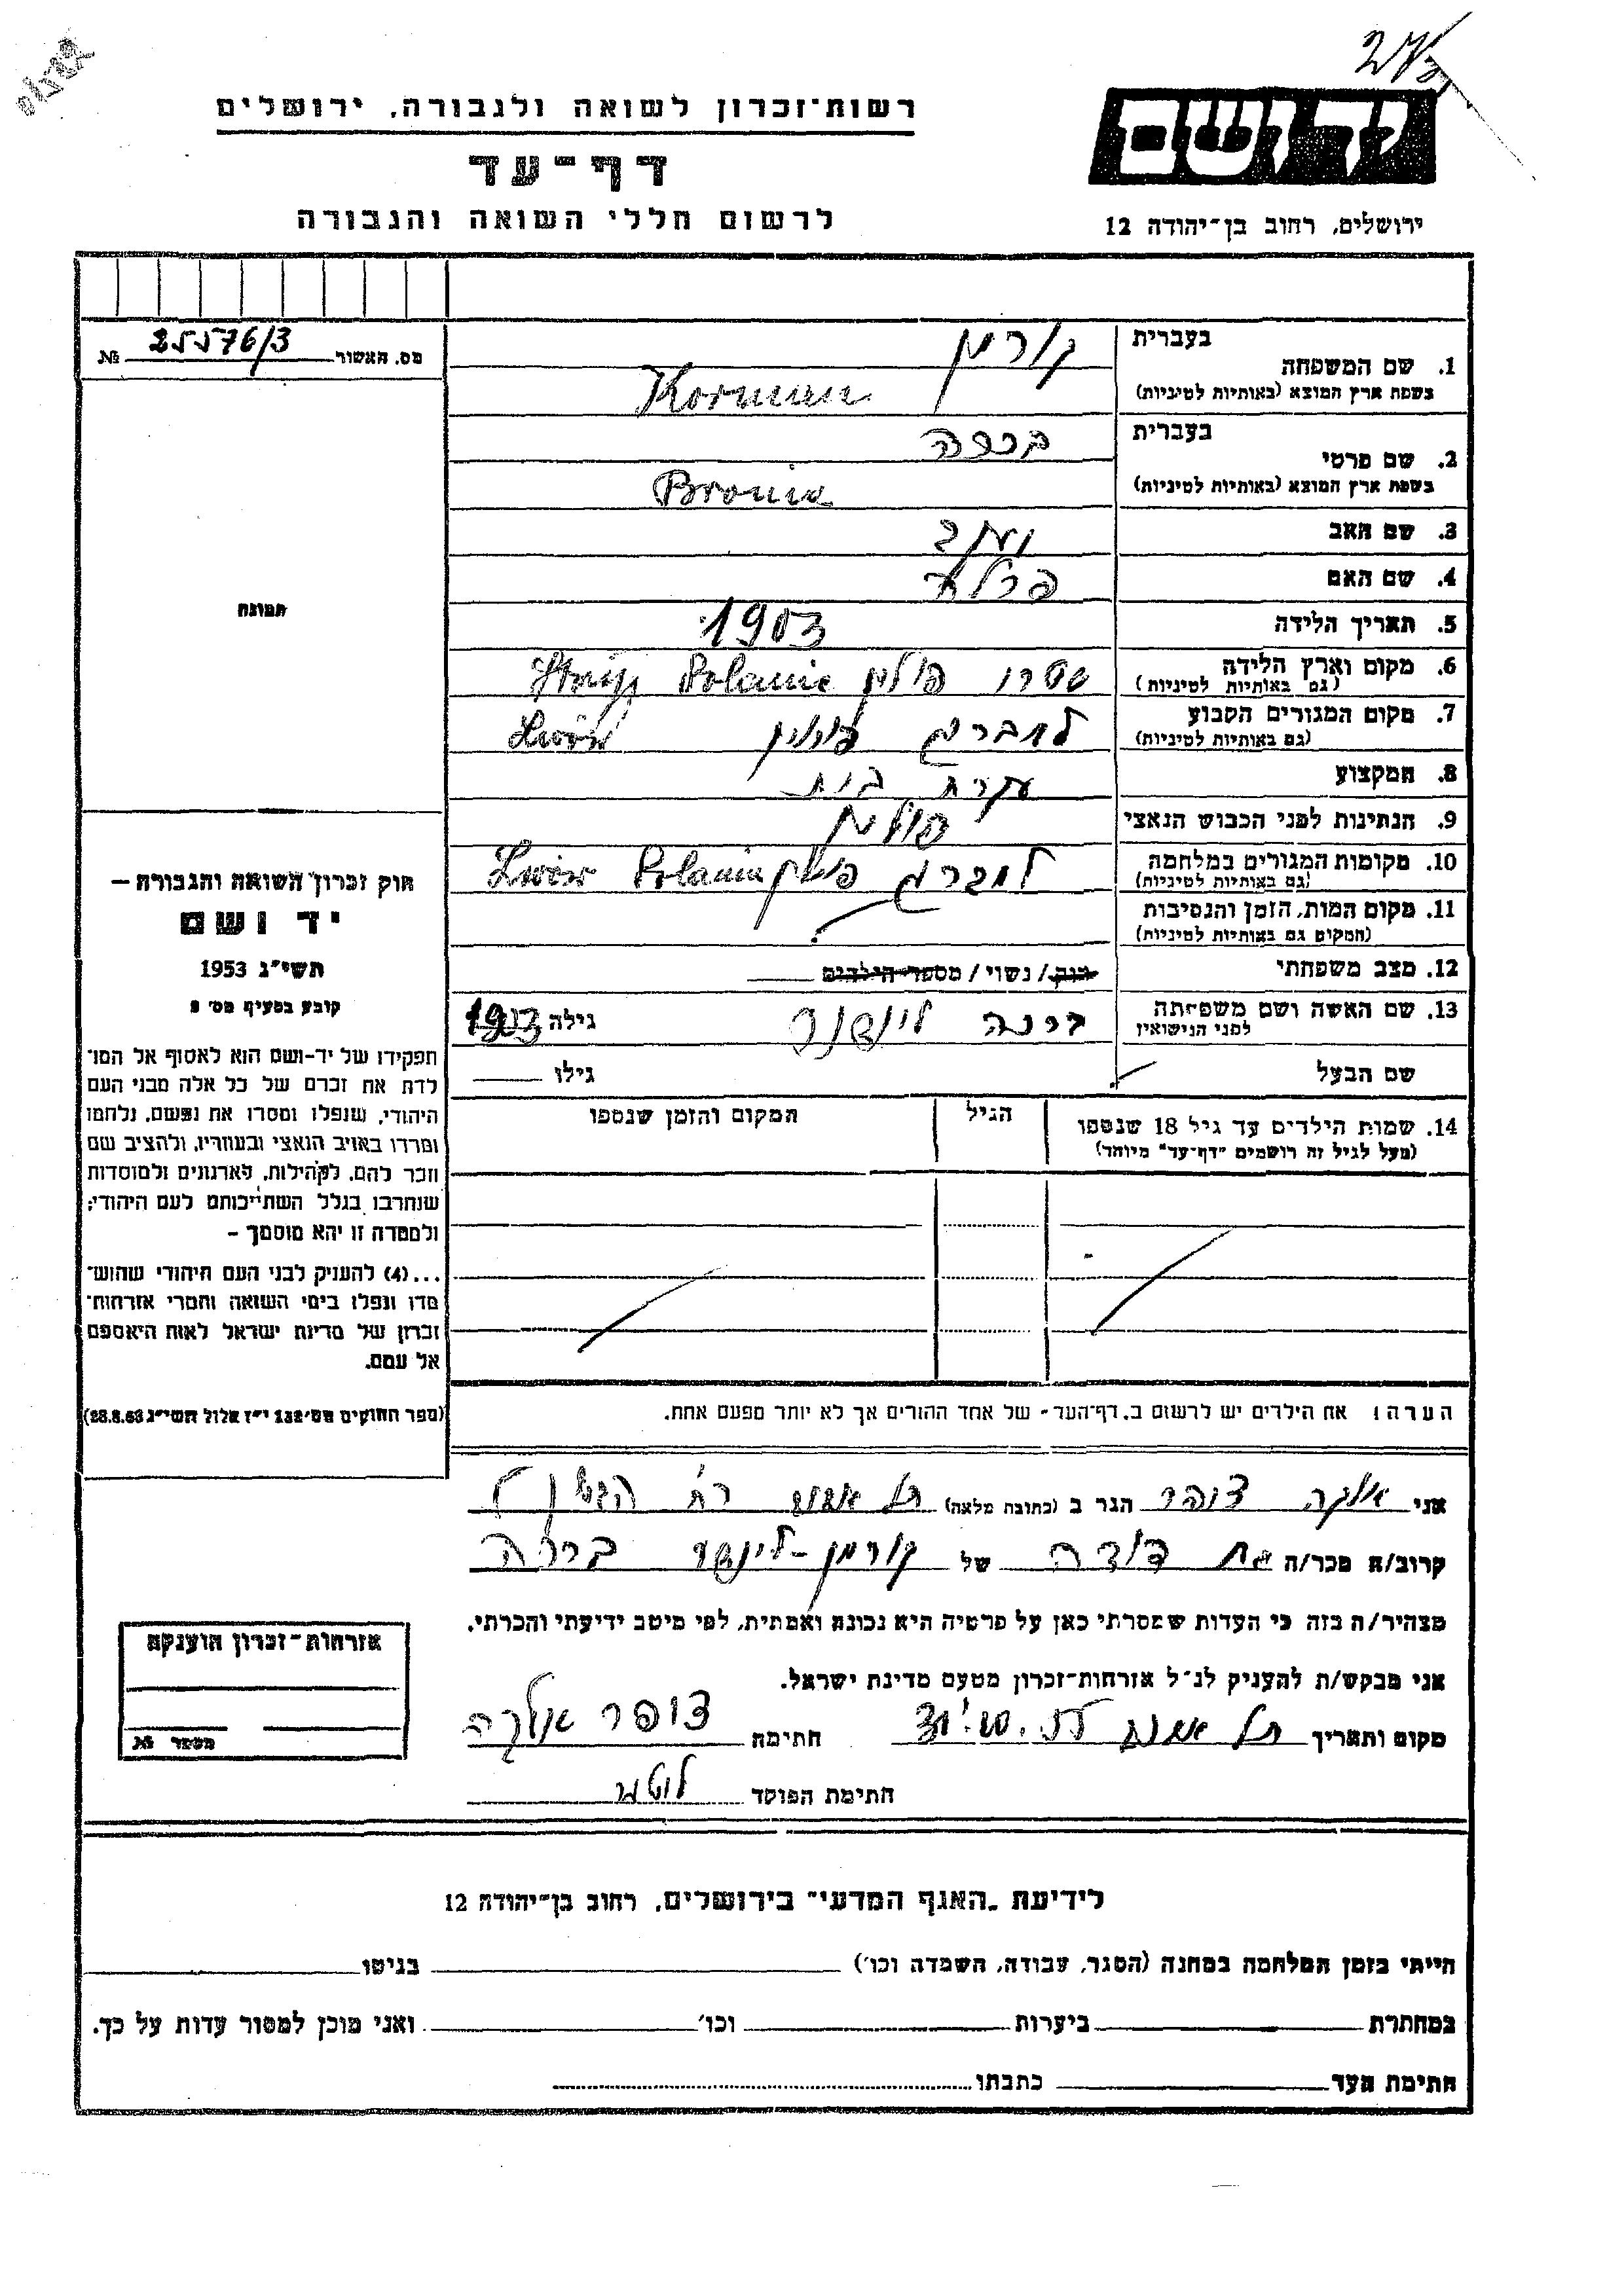 רשות־זכרון לשואה ולגבורה, ירושלים
דף־עד
לרשום חללי השואה והגבורה
יד ושם
ירושלים, רחוב בן־יהודה 12
מס. האשור 25576/3 №
1. שם המשפחה
בעברית קורמן
בשפת ארץ המוצא (באותיות לטיניות) Korman
2. שם פרטי
בעברית
בשפת ארץ המוצא (באותיות לטיניות) Bronia
3. שם האב
4. שם האם
5. תאריך הלידה 1903
6. מקום וארץ הלידה
(גם באותיות לטיניות) סטרי פולין Stryj Polanie
7. מקום המגורים הקבוע
(גם באותיות לטיניות) למברג פולין Lwów
8. המקצוע עקרת בית
9. הנתינות לפני הכבוש הנאצי פולין
10. מקומות המגורים במלחמה
(גם באותיות לטיניות) למברג פולין Lwów Polanie
11. מקום המות, הזמן והנסיבות
(המקום גם באותיות לטיניות)
12. מצב משפחתי רוק / נשוי / מספר הילדים
13. שם האשה ושם משפחתה
לפני הנישואין גילה 1903
שם הבעל גילו
14. שמות הילדים עד גיל 18 שנספו
(מעל לגיל זה רושמים "דף־עד" מיוחד)
הגיל
המקום והזמן שנספו
הערה: את הילדים יש לרשום ב,דף־העד" של אחד ההורים אך לא יותר מפעם אחת.
תמונה
חוק זכרון השואה והגבורה —
יד ושם
תשי"ג 1953
קובע בסעיף מס' 2
תפקידו של יד-ושם הוא לאסוף אל המו־
לדת את זכרם של כל אלה מבני העם
היהודי, שנפלו ומסרו את נפשם, נלחמו
ומרדו באויב הנאצי ובעוזריו, ולהציב שם
וזכר להם, לקהילות, לארגונים ולמוסדות
שנחרבו בגלל השתייכותם לעם היהודי;
ולמטרה זו יהא מוסמך –
...(4) להעניק לבני העם היהודי שהוש־
מדו ונפלו בימי השואה והמרי אזרחות־
זכרון של מדינת ישראל לאות היאספם
אל עמם.
(ספר החוקים מס' 132 י"ז אלול תשי"ג 28.8.53)
אני אולגה צופר הגר ב (כתובת מלאה) תל אביב רח'
קרוב/ה מכר/ה בת דודה של קורמן-
מצהיר/ה בזה כי העדות שמסרתי כאן על פרטיה היא נכונה ואמתית, לפי מיטב ידיעתי והכרתי.
אני מבקש/ת להעניק לנ"ל אזרחות־זכרון מטעם מדינת ישראל.
מקום ותאריך תל אביב חתימה צופר אולגה
חתימת הפוקד
אזרחות־זכרון הוענקה
מספר №
לידיעת ,האגף המדעי" בירושלים, רחוב בן־יהודה 12
הייתי בזמן המלחמה במחנה (הסגר, עבודה, השמדה וכו') בגיטו
במחתרת ביערות וכו' ואני מוכן למסור עדות על כך.
חתימת העד כתבתו